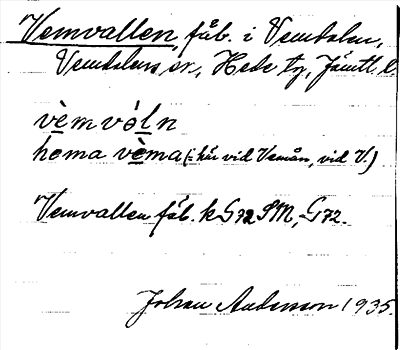 Vemvallen, fäb. i Vemdalen,
Vemdalens sn, Hede tg, Jämtl. l.
vèmvóln
hema vèma (: här vid Vemån, vid V.)
Vemvallen fäb. k G72 SM, G72.
Johan Andersson 1935.